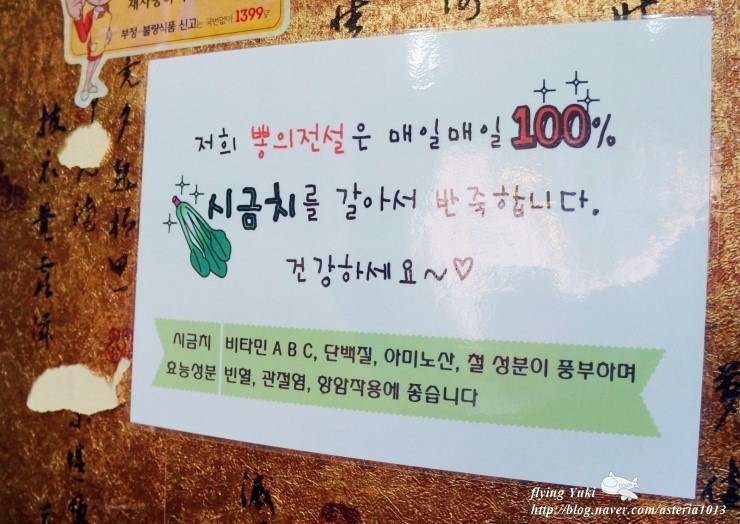 부정·불량식품 신고는 국번없이 1399로
저희 뽕의전설은 매일매일 100%
시금치를 갈아서 반죽합니다.
건강하세요~♡
시금치 비타민 A B C, 단백질, 아미노산, 철 성분이 풍부하며
효능성분 빈열, 관절염, 항암작용에 좋습니다
flying Yuki
http://blog.naver.com/asteria1013